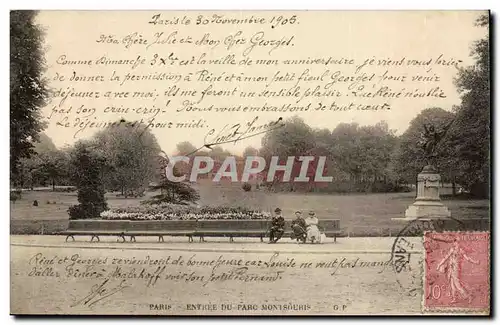 Paris le 30 Novembre 1905.
Ma chère Julie et Mon Cher Georges.
Comme Dimanche 3 Xbre est la veille de mon anniversaire je viens vous prier
de donner la permission à Réné et à mon petit fieul Georges pour venir
déjeuner avec moi. ils me feront un sensible plaisir. Que Réné n'oublie
pas son crin-crin. Nous vous embrassons de tout cœur.
Le déjeuner est pour midi.
CPARAMA
Réné et Georges viendront de bonne heure car Louise ne veut pas manquer
d'aller voir son petit Fernand
PARIS - ENTRÉE DU PARC MONTSOURIS G P
10